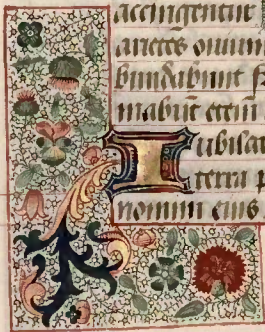 accingentur
arietes ouium
habundabunt f
mabũt etenī
Iubilat
terra p
nomini eius